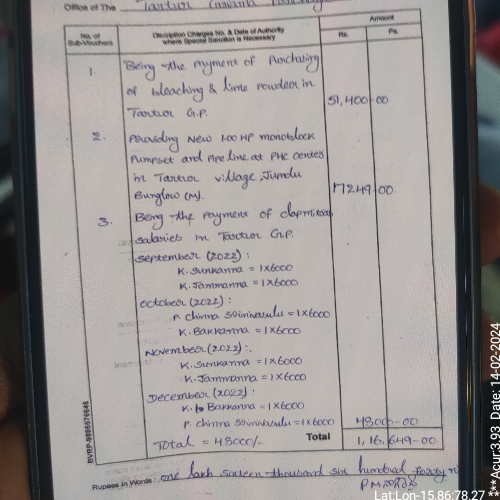 Office of The Tartur
No. of Sub-Vouchers
Discription Charges No. & Date of Authority where Special Sanction is Necessary
Amount
Rs. Ps.
1. Being the payment of Purchasing
of bleaching & lime powder in
Tartur G.P. 51,400-00
2. Providing New 1.00 HP monoblock
Pumpset and Pipeline at PHC center
in Tartur village, Jundu
Burglow (M). 17249-00.
3. Being the payment of
salaries in Tartur G.P.
September (2022) :
K. Sunkanna = 1X6000
K. Jammanna = 1X6000
october (2022) :
P. chinna Srinivasulu = 1X6000
K. Bakkanna = 1X6000
November (2022) :.
K. Sunkanna = 1X6000
K. Jammanna = 1X6000
December (2022) :
K. Bakkanna = 1X6000
P. chinna Srinivasulu = 1X6000 48000-00
Total = 48000/- Total 1,16,649-00.
Rupees in Words : one lakh sixteen thousand six hundred forty
BVRP-9885676646
Lat:Lon-15.86:78.27
**Acur:3.93 Date:14-02-2024